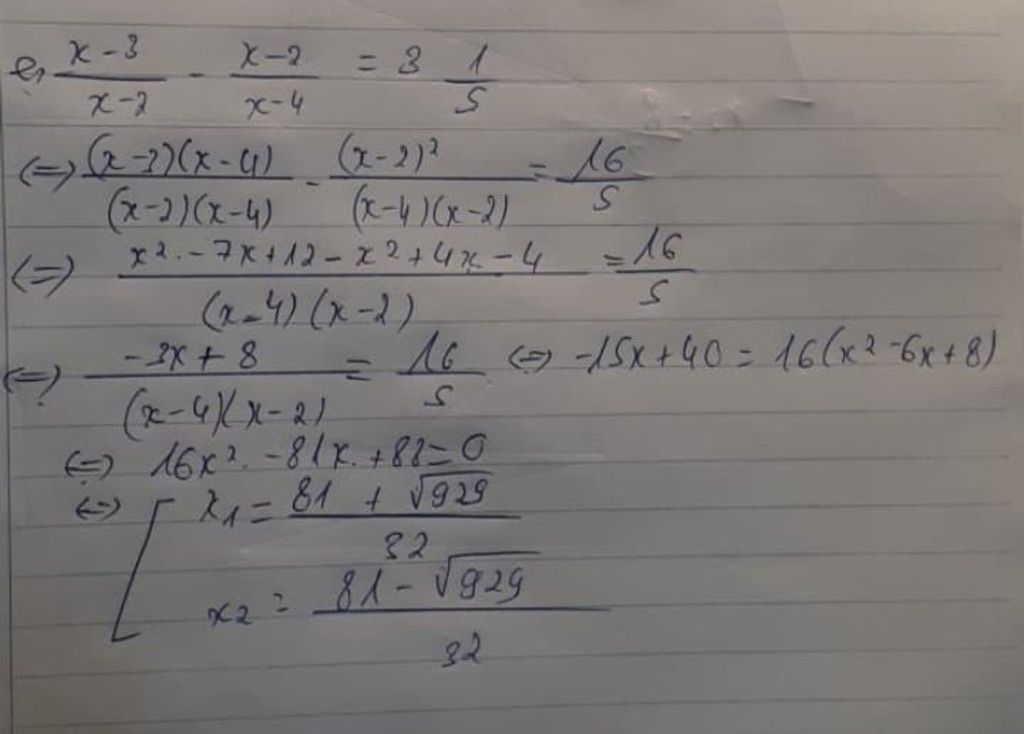 e, \frac{x-3}{x-2} - \frac{x-2}{x-4} = 3 \frac{1}{5}
(=) \frac{(x-3)(x-4)}{(x-2)(x-4)} - \frac{(x-2)^2}{(x-4)(x-2)} = \frac{16}{5}
(=) \frac{x^2-7x+12-x^2+4x-4}{(x-4)(x-2)} = \frac{16}{5}
(=) \frac{-3x+8}{(x-4)(x-2)} = \frac{16}{5} (=) -15x+40 = 16(x^2-6x+8)
(=) 16x^2-81x+88=0
(=) [ x_1 = \frac{81+\sqrt{929}}{32}
x_2 = \frac{81-\sqrt{929}}{32}